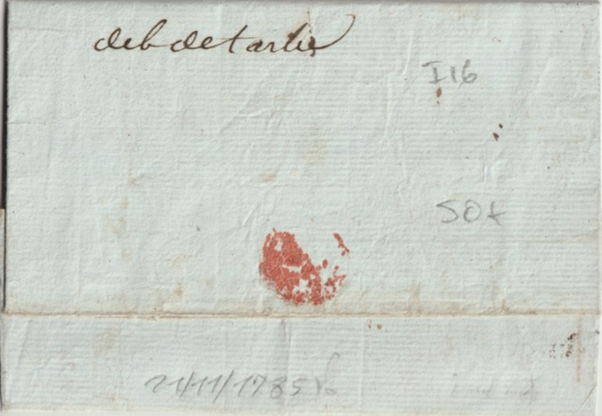 deb de tarbes
I16
50x
21/11/1785